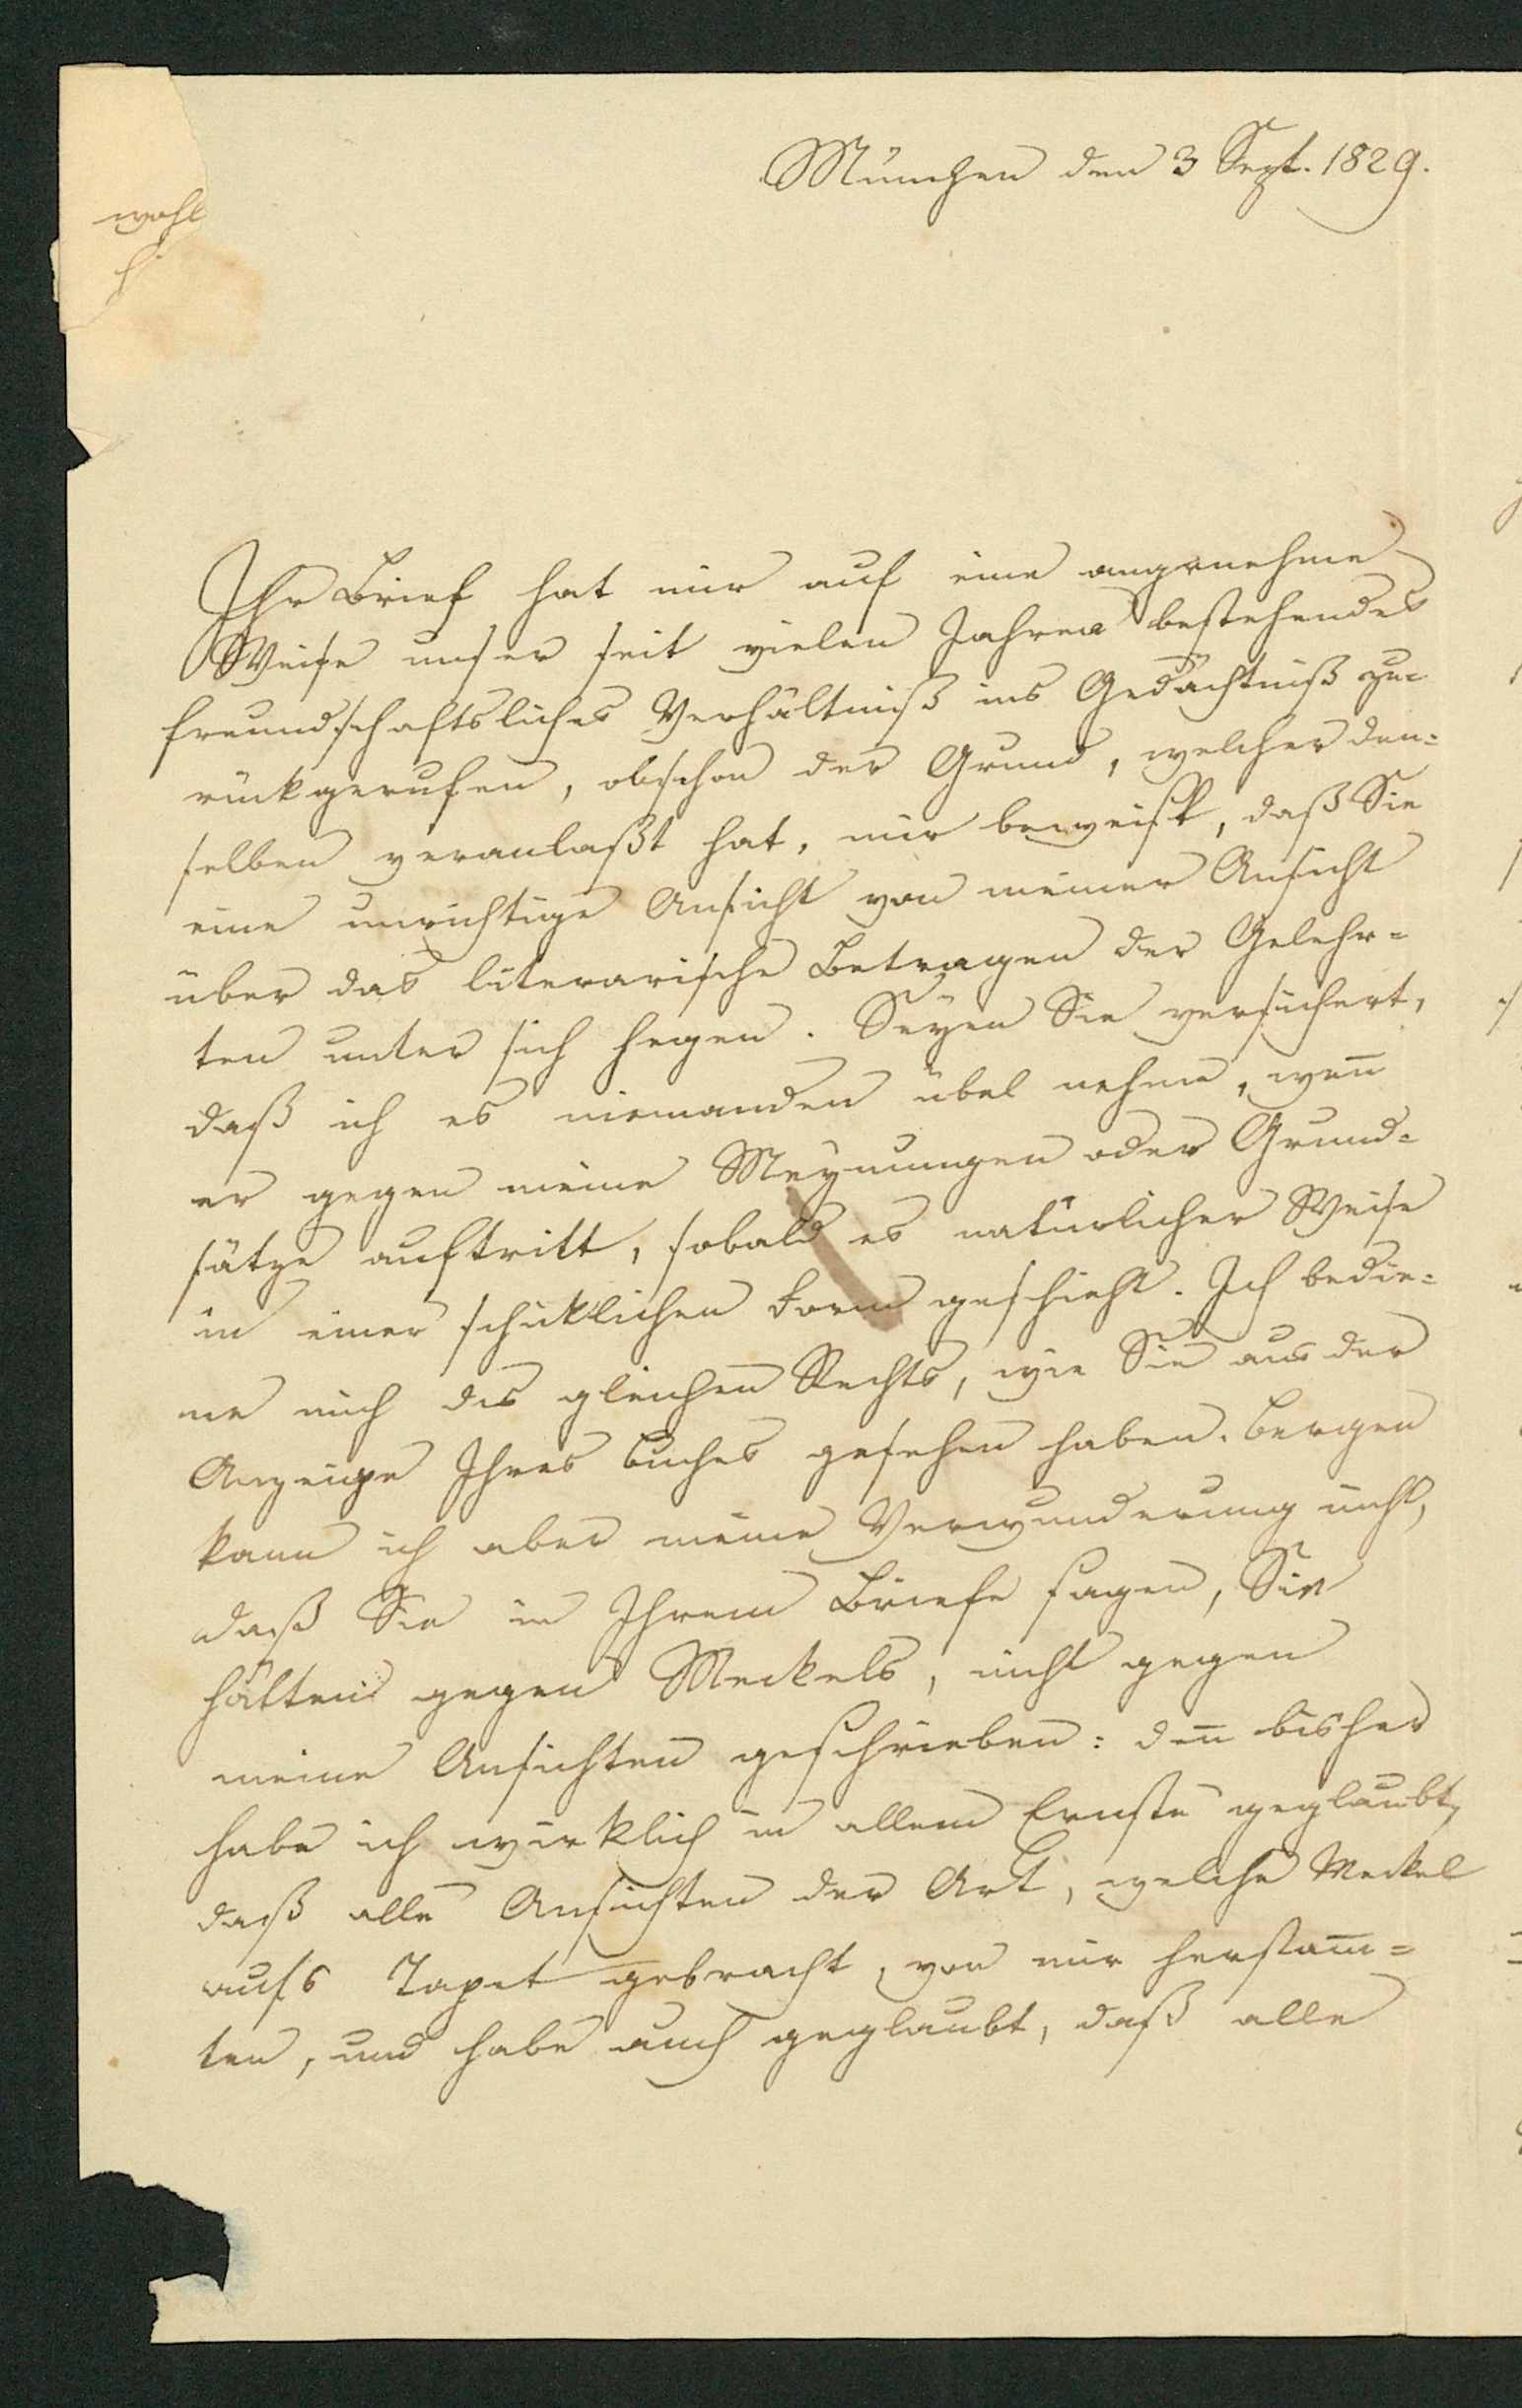 München den 3 Sept. 1829.
wohl
Ihr Brief hat mir auf eine angenehme
Weise unser seit vielen Jahren bestehendes
freundschaftsliches Verhältniß ins Gedächtniß zu-
rükgerufen, obschon der Grund, welcher den=
selben veranlaßt hat, mir beweist, daß Sie
eine unrichtige Ansicht von meiner Ansicht
über das literarische Betragen der Gelehr=
ten unter sich hegen. Seyen Sie versichert,
daß ich es niemanden übel nehme, weñ
er gegen meine Meynungen oder Grund=
sätze auftritt, sobald es natürlicher Weise
in einer schiklichen Form geschieht. Ich bedie=
ne mich des gleichen Rechts, wie Sie aus der
Anzeige Ihres Buches gesehen haben. Bergen
kann ich aber meine Verwunderung nicht,
daß Sie in Ihrem Briefe sagen, Sie
hätten gegen Meckels, nicht gegen
meine Ansichten geschrieben: deñ bisher
habe ich wirklich in allem Ernste geglaubt,
daß alle Ansichten der Art, welche Meckel
aufs Tapet gebracht, von mir herstam̄=
ten, und habe auch geglaubt, daß alle